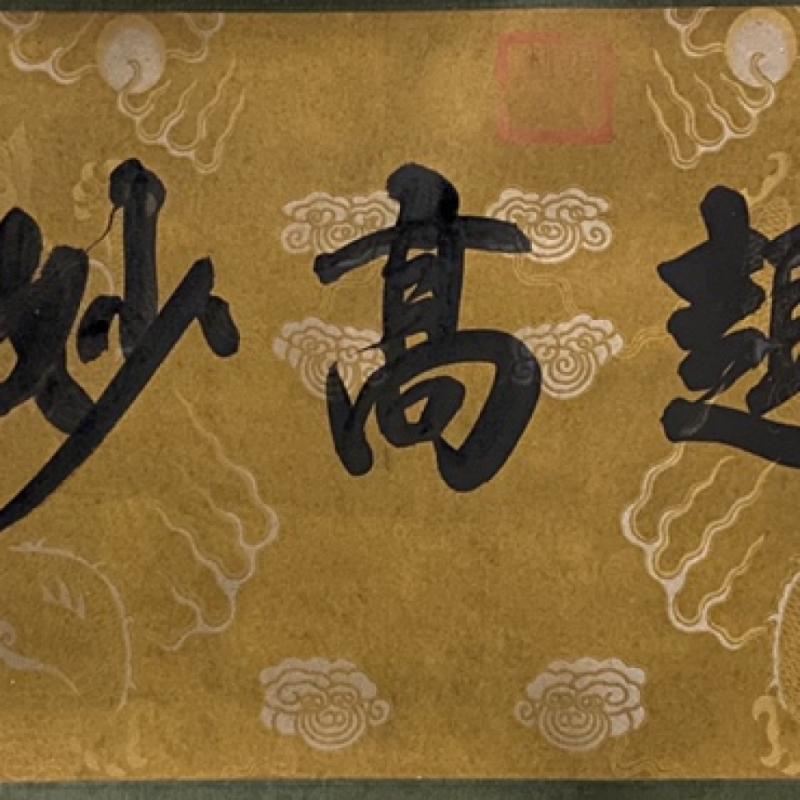 趣高妙